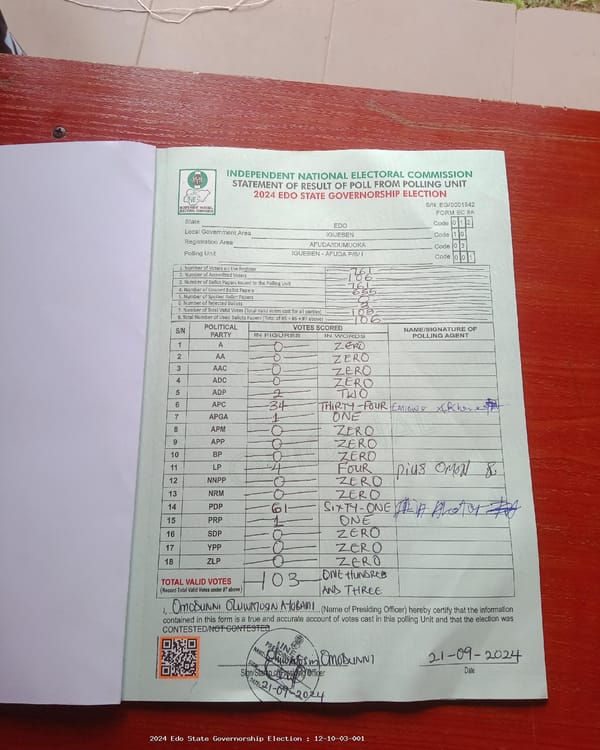 INDEPENDENT NATIONAL ELECTORAL COMMISSION
STATEMENT OF RESULT OF POLL FROM POLLING UNIT
2024 EDO STATE GOVERNORSHIP ELECTION
S/N: EG/0001942
FORM EC 8A
State EDO Code 0 1 2
Local Government Area IGUEBEN Code 1 0
Registration Area AFUDA/IDUMUOKA Code 0 3
Polling Unit IGUEBEN - AFUDA P/S/ I Code 0 0 1
1. Number of Voters on the Register 761
2. Number of Accredited Voters 106
3. Number of Ballot Papers Issued to the Polling Unit 761
4. Number of Unused Ballot Papers 655
5. Number of Spoiled Ballot Papers 0
6. Number of Rejected Ballots 3
7. Number of Total Valid Votes (Total Valid Votes cast for all parties) 103
8. Total Number of Used Ballots Papers (Total of #5 + #6 + #7 above) 106
S/N POLITICAL PARTY VOTES SCORED NAME/SIGNATURE OF POLLING AGENT
IN FIGURES IN WORDS
1 A 0 ZERO
2 AA 0 ZERO
3 AAC 0 ZERO
4 ADC 0 ZERO
5 ADP 2 TWO
6 APC 34 THIRTY-FOUR
7 APGA 1 ONE
8 APM 0 ZERO
9 APP 0 ZERO
10 BP 0 ZERO
11 LP 4 FOUR PIUS OMON
12 NNPP 0 ZERO
13 NRM 0 ZERO
14 PDP 61 SIXTY-ONE
15 PRP 1 ONE
16 SDP 0 ZERO
17 YPP 0 ZERO
18 ZLP 0 ZERO
TOTAL VALID VOTES 103 ONE HUNDRED
(Record Total Valid Votes under #7 above) AND THREE
I, OMODUNNI (Name of Presiding Officer) hereby certify that the information
contained in this form is a true and accurate account of votes cast in this polling Unit and that the election was
CONTESTED/NOT CONTESTED
OMODUNNI 21-09-2024
Sign/Stamp of Presiding Officer Date
21-09-2024
2024 Edo State Governorship Election : 12-10-03-001